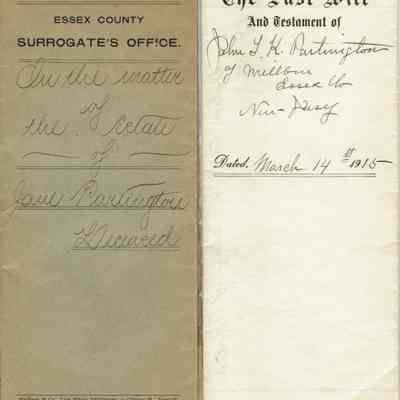 ESSEX COUNTY
SURROGATE'S OFFICE.
In the matter
of
the Estate
of
Jane Partington
Deceased
The Last Will
And Testament of
John T. K. Partington
of Millburn
Essex Co
New-Jersy
Dated, March 14 st 1915